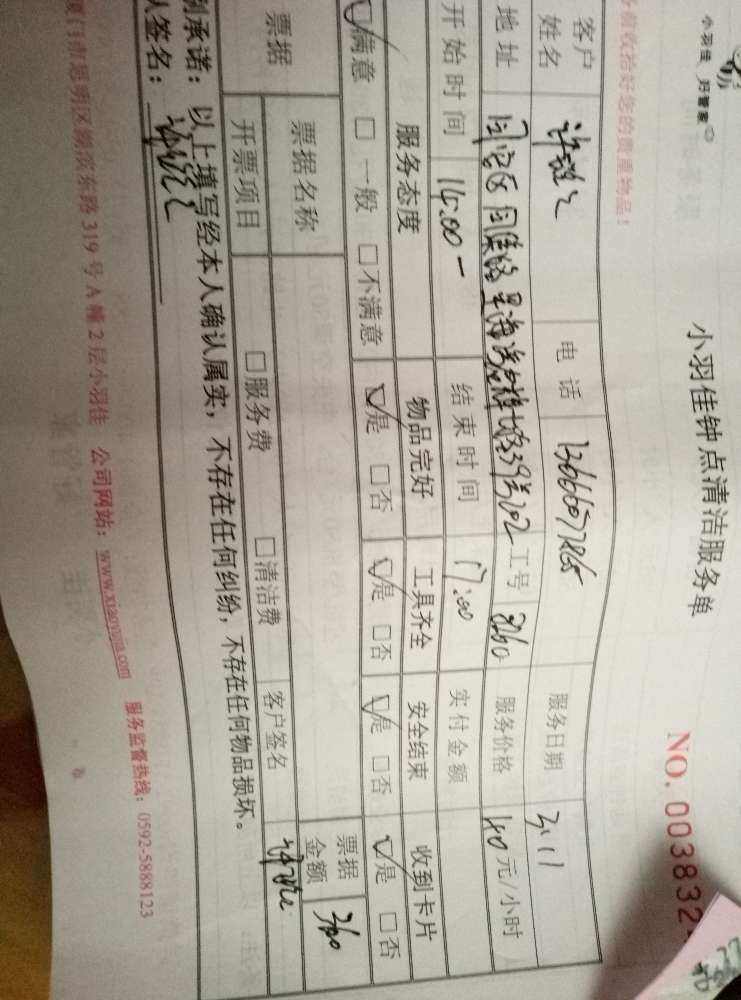 小羽佳 好管家
小羽佳钟点清洁服务单
NO. 003832
前收拾好您的贵重物品！
客户姓名 电话 服务日期 3.11
地址 工号 8260 服务价格 40 元/小时
开始时间 14:00 — 结束时间 17:00 实付金额
服务态度 物品完好 工具齐全 安全结束 收到卡片
☑满意 □一般 □不满意 ☑是 □否 ☑是 □否 ☑是 □否 ☑是 □否
票据 票据名称 票据金额 360
开票项目 □服务费 □清洁费 客户签名
承诺：以上填写经本人确认属实，不存在任何纠纷，不存在任何物品损坏。
签名：
厦门市思明区 东路 319 号 A 幢 2 层小羽佳 公司网站：www.xiaoyujia.com 服务监督热线：0592-5888123